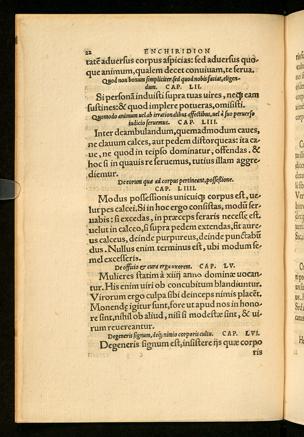 22 ENCHIRIDION
tatẽ aduersus corpus aspicias: sed aduersus quo-
que animum, qualem decet conuiuam, te serua.
Quod non bonum simpliciter, sed quod nobis faciat, eligen-
dum. CAP. LII.
Si personã induisti supra tuas uires, neqꝫ eam
sustines: & quod implere potueras, omisisti.
Quomodo animum uel ab irrationalibus affectibus, uel à suo peruerso
iudicio seruemus. CAP. LIII.
Inter deambulandum, quemadmodum caues,
ne clauum calces, aut pedem distorqueas: ita ca-
ue, ne quod in teipso dominatur, offendas. &
hoc si in quauis re seruemus, tutius illam aggre-
diemur.
De eorum quæ ad corpus pertineant, possessione.
CAP. LIIII.
Modus possessionis unicuiqꝫ corpus est, ue-
lut pes calcei. Si in hoc ergo consistas, modũ ser-
uabis: si excedas, in præceps feraris necesse est.
uelut in calceo, si supra pedem extendas, fit aure-
us calceus, deinde purpureus, deinde punctabũ
dus. Nullus enim terminus est, ubi modum se-
mel excesseris.
De officio & cura erga uxorem. CAP. LV.
Mulieres statim à xiiij anno dominæ uocan-
tur. His enim uiri ob concubitum blandiuntur.
Virorum ergo culpa sibi deinceps nimis placẽt.
Monendę igitur sunt, fore ut apud nos in hono-
re sint, nihil ob aliud, nisi si modestæ sint, & ui-
rum reuereantur.
Degeneris signum, deijs, nimio corporis cultu. CAP. LVI.
Degeneris signum est, insistere ijs quæ corpo
ris